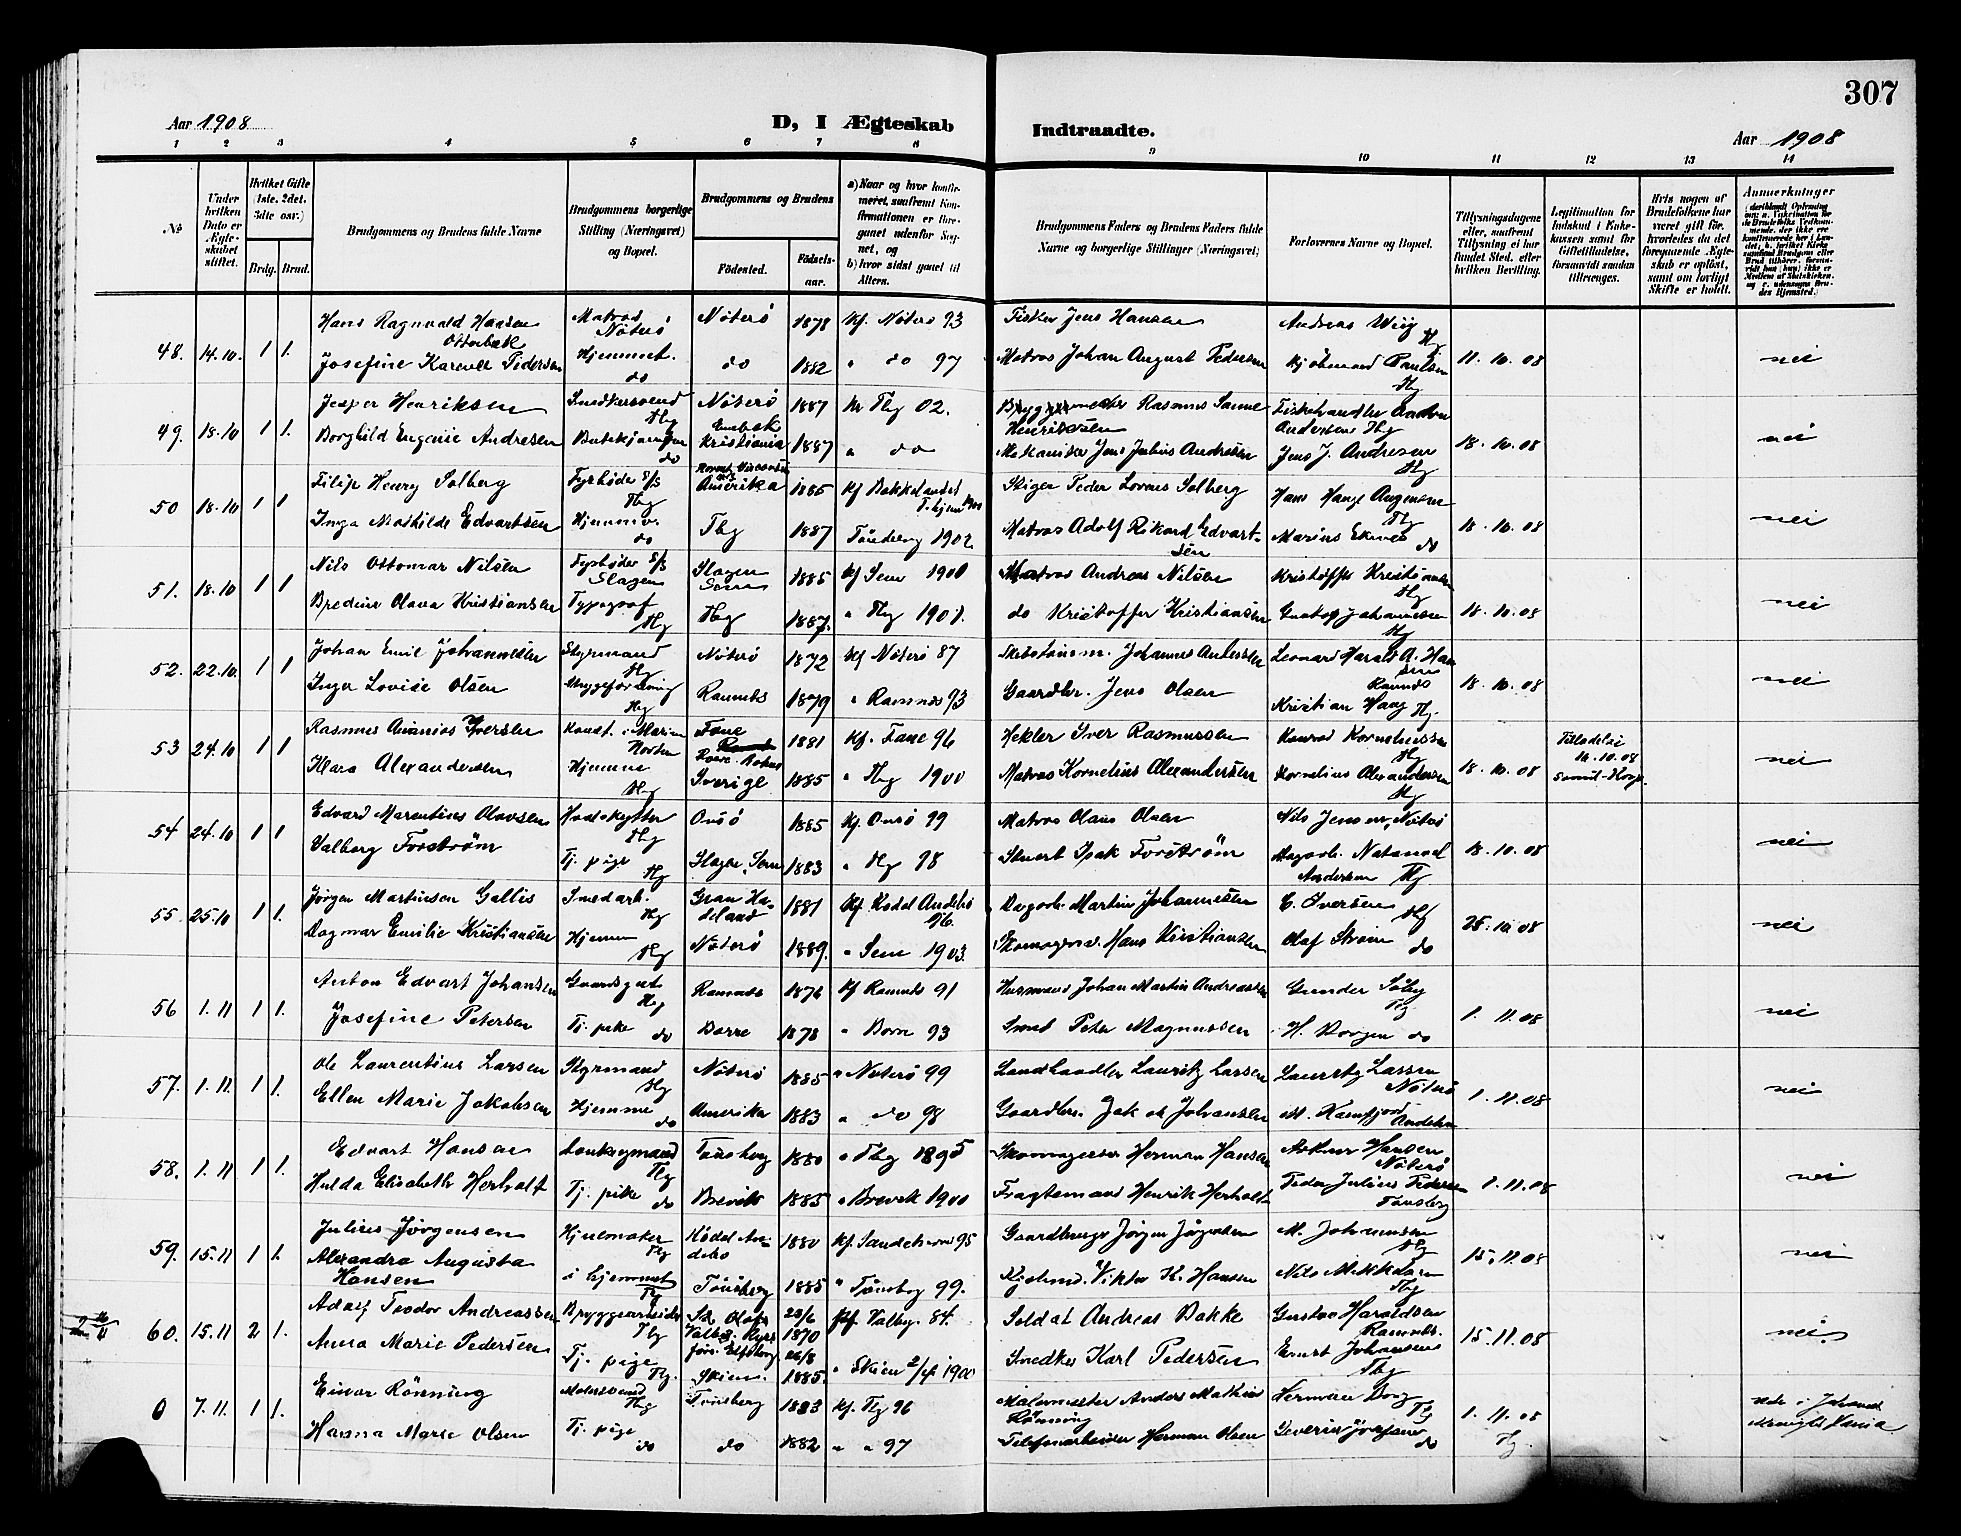 307
Aar 1908
D, I Ægteskab
Indtraadte.
Aar 1908
1 2 3 4 5 6 7 8 9 10 11 12 13 14
No
Under hvilken Dato er Ægteskabet stiftet.
Hvilket Gifte (1ste, 2det, 3die osv.)
Brdg. Brud.
Brudgommens og Brudens fulde Navne
Brudgommens borgerlige Stilling (Næringsvei) og Bopæl.
Brudgommens og Brudens
Fødested.
Fødselsaar.
a) Naar og hvor konfirmeret, saafremt Konfirmationen er foregaaet udenfor Sognet, og
b) hvor sidst gaaet til Alters.
Brudgommens Faders og Brudens Faders fulde Navne og borgerlige Stillinger (Næringsvei)
Forlovernes Navne og Bopæl.
Tillysningsdagene eller, saafremt Tillysning ei har fundet Sted, efter hvilken Bevilling.
Legitimation for Indskud i Enkekassen samt for Giftetilladelse, forsaavidt saadan tiltrænges.
Hvis nogen af Brudefolkene har været gift før, hvorledes da det foregaaende Ægteskab er opløst, samt om lovligt Skifte er holdt.
Anmerkninger
48. 14.10. 1 1.
Hans Ragnvald Hansen
Matros Nøterø
Nøterø 1878 Kf. Nøterø 93
Fisker Jens Hansen
Andreas Wiig Tbg
Josefine Karoell Pedersen
Hjemmet do
do 1882 " do 97
Matros Johan August Pedersen
Paulsen Tbg
11.10.08
nei
49. 18.10 1 1.
Jesper Henriksen
Snedkersvend Tbg
Nøterø 1887 Kf Tbg 02.
Rasmus Sanne Henriksen
Fiskehandler
Andersen Tbg
Borghild Eugenie Andresen
do
Kristiania 1887 " do
Mekaniker Jens Julius Andresen
Jens J. Andresen Tbg
18.10.08
nei
50 18.10 1 1
Filip Henry Solberg
Fyrbøder S/S Tbg
Amerika 1885 Kf Bakkelandet
Stiger Peder Lorens Solberg
Hans Hauge Augensen Tbg
Inga Mathilde Edvartsen
Hjemmev. do
Tbg 1887 Tønsberg 1902
Matros Adolf Rikard Edvartsen
Marius Eknes do
18.10.08
nei
51. 18.10 1 1
Nils Ottomar Nilsen
Fyrbøder S/S Slagen
Slagen Sem 1885 Kf Sem 1900
Matros Andreas Nilsen
Kristoffer Kristiansen Tbg
Bredine Olava Kristiansen
Typograf Tbg
Tbg 1887. " Tbg 1901.
do Kristoffer Kristiansen
Gustav Johannessen Tbg
18.10.08
nei
52. 22.10. 1 1
Johan Emil Johannessen
Styrmand Tbg
Nøterø 1872 Kf Nøterø 87
Johannes Anderssen
Leonard Harald A. Hansen
Ramnes
Inga Lovise Olsen
Tbg
Ramnes 1879 " Ramnes 93
Gaardbr. Jens Olsen
Kristian Haag Tbg.
18.10.08
nei
53 24.10 1 1
Rasmus Ananias Iversen
Horten
Fane 1881 Kf. Fane 96
Hekler Iver Rasmussen
Konrad Korneliussen Tbg
Klara Alexandersen
Hjemme Tbg
Sverige 1885 " Tbg 1900
Matros Kornelius Alexandersen
Kornelius Alexandersen Tbg
18.10.08
Tilladelse
10.10.08
nei
54 24.10 1 1
Edvard Marentius Olavsen
Tbg
Onsø 1885 Kf. Onsø 99
Matros Olaus Olsen
Nils Jensen, Nøterø
Valborg Forstrøm
Tj. pige Tbg
Slagen, Sem 1883 " Tbg 98
Stuert Isak Forstrøm
Natanael Andersen Tbg
18.10.08
nei
55. 25.10 1 1.
Jørgen Martinsen Gallis
Smedarb. Tbg
Gran Hadeland 1881 Kf. Kodal Andebo 96.
Dagarb. Martin Johannessen
E. Iversen Tbg
Dagmar Emilie Kristiansen
Hjemme Tbg
Nøterø 1889. " Sem 1903.
Skomagersv. Hans Kristiansen
Olaf Strøm do
25.10.08
nei
56 1.11 1 1.
Anton Edvart Johansen
Gaardsgut Tbg
Ramnes 1876 Kf Ramnes 91
Husmand Johan Martin Andreassen
Gunder Søby Tbg
Josefine Petersen
Tj. pike do
Borre 1878 " Borre 93
Smed Peter Magnussen
H. Borgen do
1.11.08
nei
57. 1.11. 1 1.
Ole Laurentius Larsen
Styrmand Tbg
Nøterø 1885 " Nøterø 99
Landhandler Lauritz Larsen
Lauritz Larsen Nøterø
Ellen Marie Jakobsen
Hjemme do
Amerika 1883 " do 98
Gaardbr. Jakob Johansen
1.11.08
nei
58. 1.11 1 1.
Edvart Hansen
Tbg
Tønsberg 1880 " Tbg 1895
Skomagerm Herman Hansen
Arthur Hansen Nøterø
Hulda Elisabeth Herholt
Tj. pike do
Brevik 1885 " Brevik 1900
Fragtemand Henrik Herholt
Peder Julius Pedersen Tønsberg
1.11.08
nei
59. 15.11 1 1.
Julius Jørgensen
Hjulmaker Tbg
Kodal Andebo 1880 Kf. Sandeherred 95
Gaardbruger Jørgen Jørgensen
M. Johannessen Tbg
Alexandra Augusta Hansen
i hjemmet Tbg
Tønsberg 1885 " Tønsberg 99.
Viktor K. Hansen
Nils Mikkelsen Tbg
15.11.08
nei
60. 15.11 2 1.
Adolf Teodor Andreassen
Bryggearbeider Tbg
28/6 1870 Kf. Valby. 84.
Soldat Andreas Bakke
Gustav Haraldsen Ramnes.
Anna Marie Pedersen
Tj. pige Tbg.
Skien. 26/8 1885. " Skien 2/4 1900
Snedker Karl Pedersen
Ernst Johansen Tbg
15.11.08
nei.
0 7.11. 1 1.
Einar Rønning
Malersvend Tbg
Tønsberg 1883 Kf. Tbg 96
Malermester Anders Mathias Rønning
Herman Borg Tbg
Hanna Marie Olsen
Tj. pige do
do 1882 " " 97
Telefonarbeider Herman Olsen
Severin Josefsen do
1.11.08 Tbg